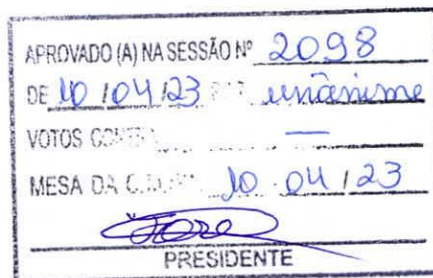 APROVADO (A) NA SESSÃO Nº 2098
DE 10 / 04 / 23 unânime
VOTOS —
MESA DA 10 04 / 23
PRESIDENTE